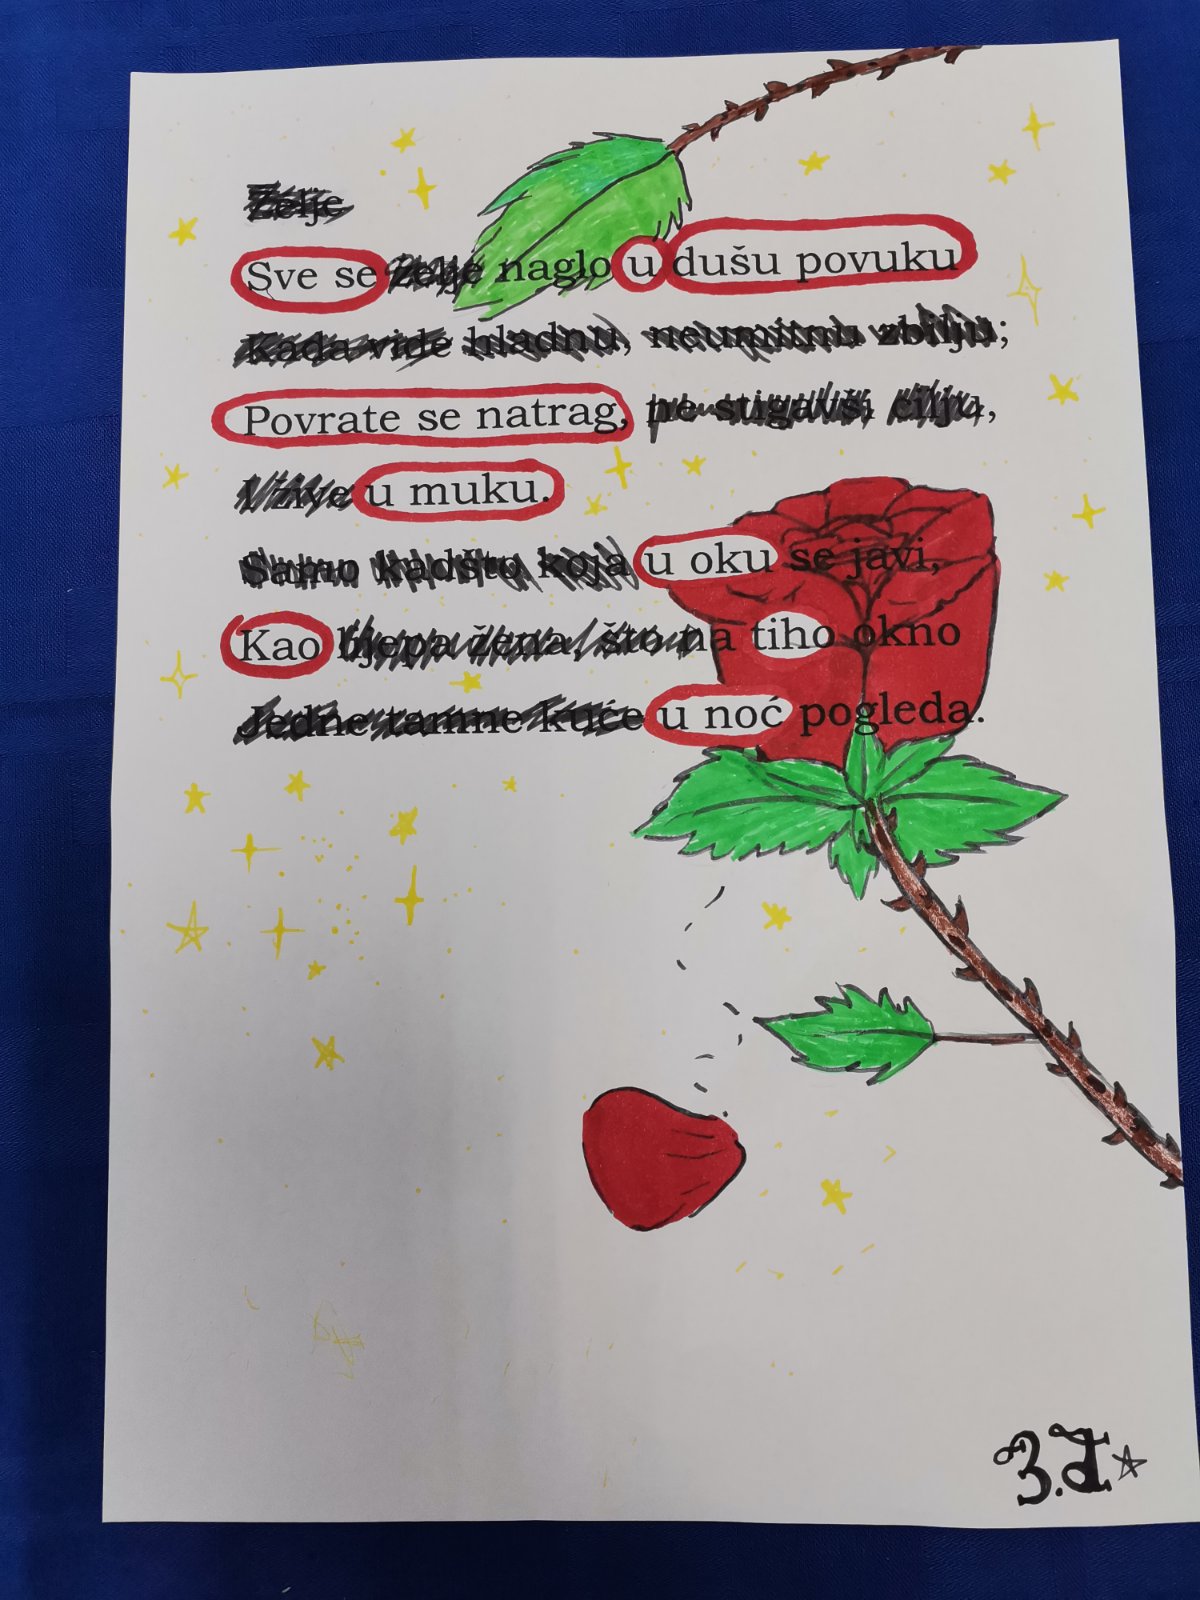 Želje
Sve se želje naglo u dušu povuku
Kada vide hladnu, neumitnu zbilju;
Povrate se natrag, ne stigavši cilju,
I žive u muku.
Samo kadšto koja u oku se javi,
Kao lijepa žena, što na tiho okno
Jedne tamne kuće u noć pogleda.
3.J